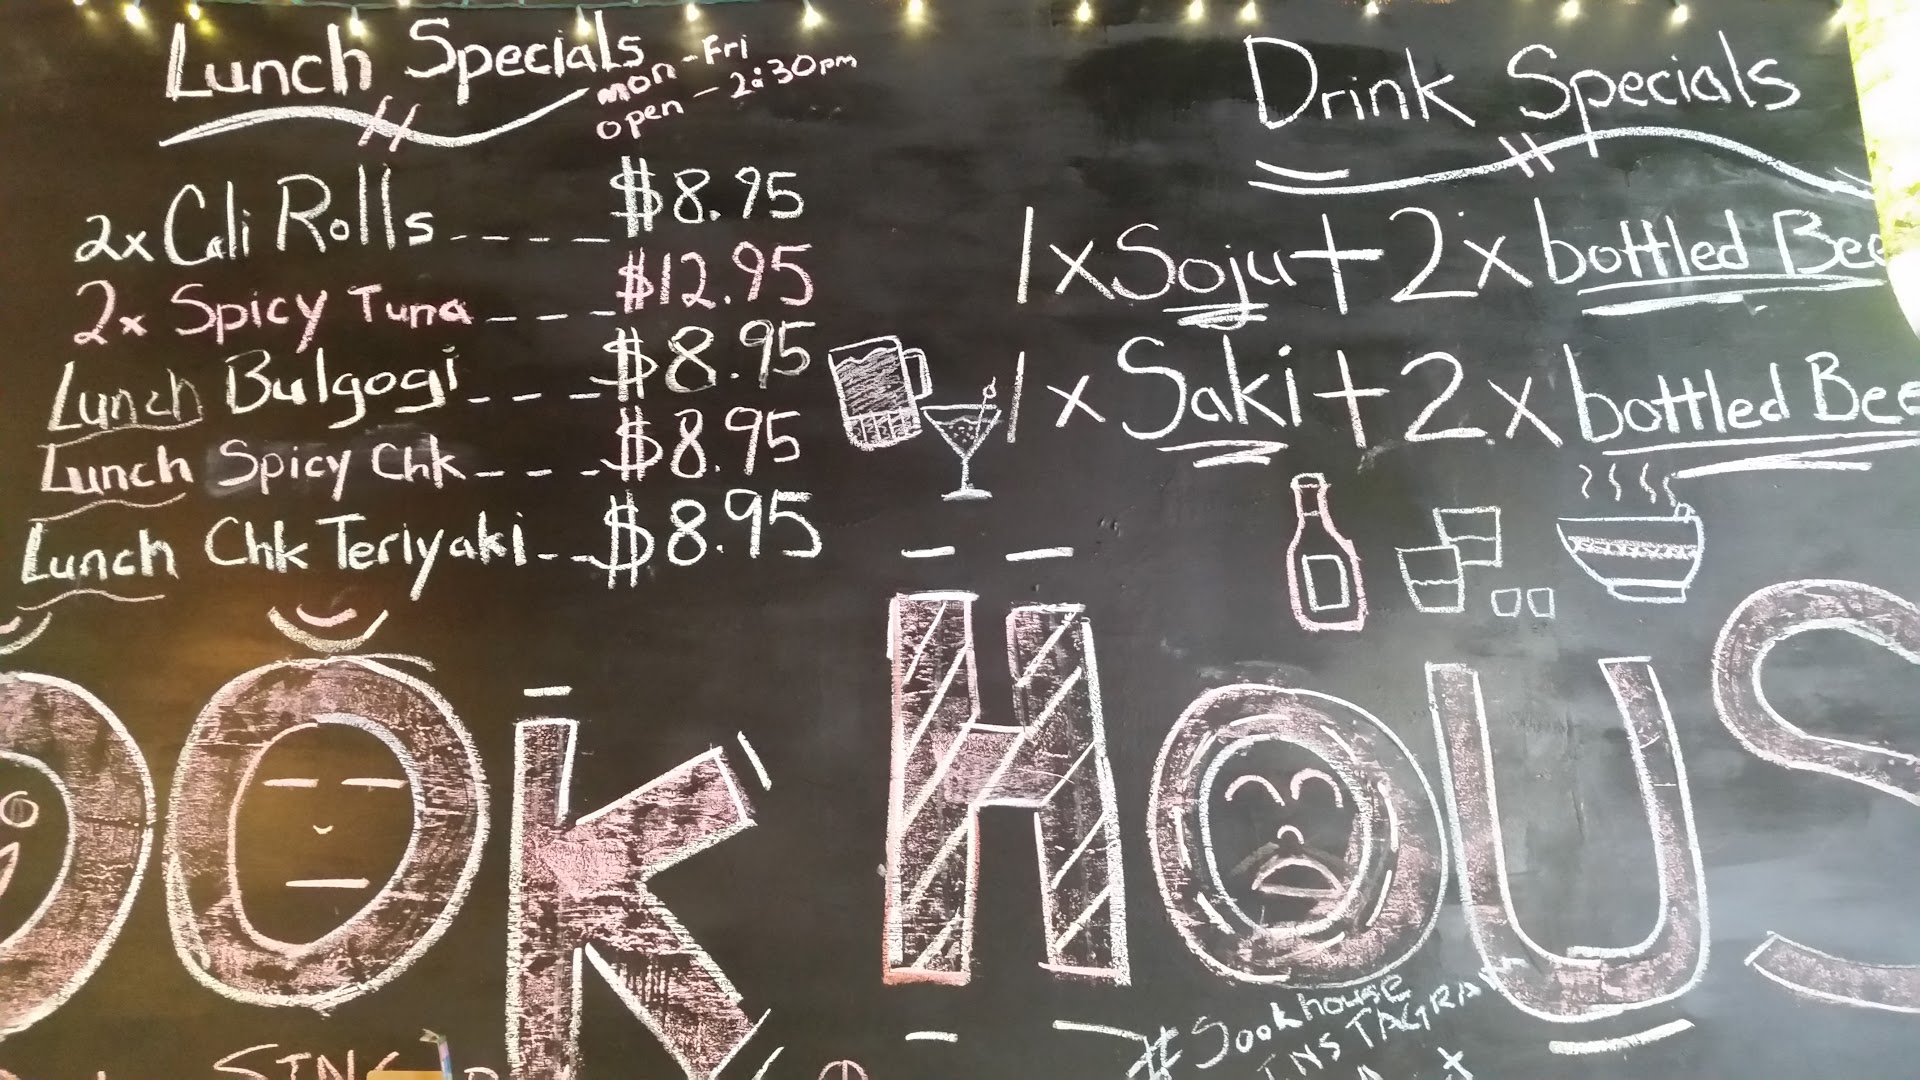 Lunch Specials
mon-Fri
open - 2:30pm
2x Cali Rolls ---- $8.95
2x Spicy Tuna --- $12.95
Lunch Bulgogi --- $8.95
Lunch Spicy Chk --- $8.95
Lunch Chk Teriyaki -- $8.95
Drink Specials
1xSoju+2x bottled Bee
1x Saki+2x bottled Bee
OOK HOUS
#Sookhouse
INSTAGRA
SING